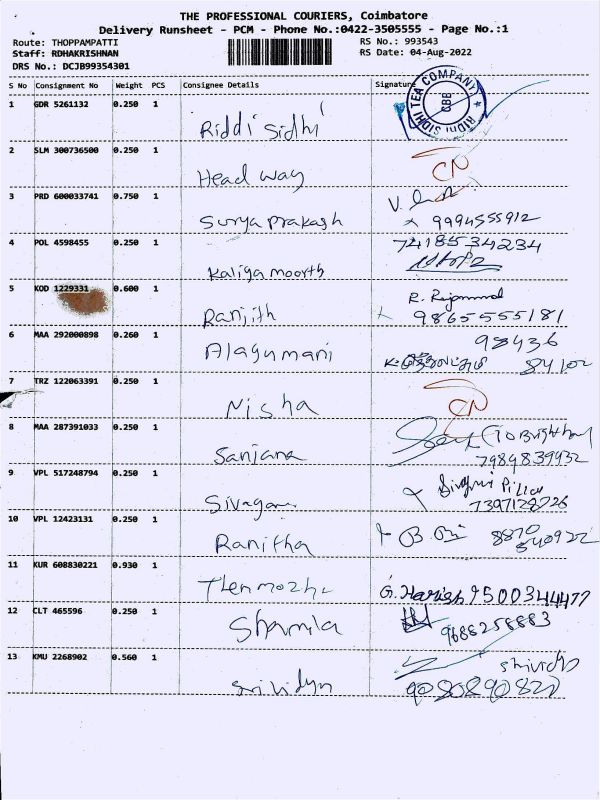 THE PROFESSIONAL COURIERS, Coimbatore
Delivery Runsheet - PCM - Phone No.:0422-3505555 - Page No.:1
Route: THOPPAMPATTI RS No.: 993543
Staff: RDHAKRISHNAN RS Date: 04-Aug-2022
DRS No.: DCJB99354301
S No Consignment No Weight PCS Consignee Details Signature
RIDHI SIDHI TEA COMPANY CBE
1 GDR 5261132 0.250 1
Riddi Sidhi
2 SLM 300736500 0.250 1
Head way CN
3 PRD 600033741 0.750 1
Surya prakash 9994555912
4 POL 4598455 0.250 1 7418534234
Kaliya moorth
5 KOD 1229331 0.600 1
Ranjith 9865555181
6 MAA 292000898 0.260 1 98436
Alagumani 84102
7 TRZ 122063391 0.250 1
Nisha CN
8 MAA 287391033 0.250 1
Sanjana 7989839932
9 VPL 517248794 0.250 1
Sivagami 7397128726
10 VPL 12423131 0.250 1
Ranitha 8870
540922
11 KUR 608830221 0.930 1
Thenmozhi G. Harish 9500344477
12 CLT 465596 0.250 1
Sharmila 9688258883
13 KMU 2268902 0.560 1
Srividya 9080890820